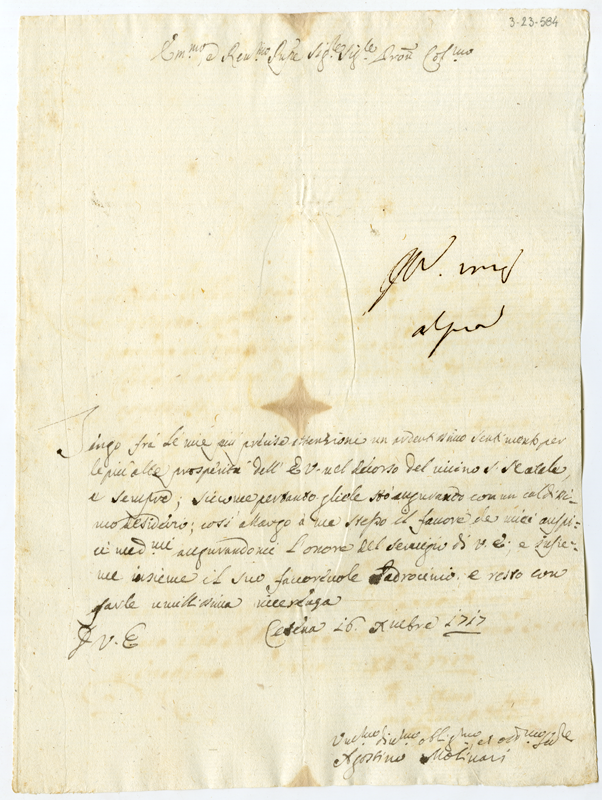 3-23-584
Em.mo, e Rev.mo Pnpe Sig.re Sig.re Pron Col.mo
Tengo frà le mie più precise attenzioni un ardentissimo sentimento per
le più alte prosperità dell' E V. nel decorso del vicino S. Natale,
e sempre; siccome pertanto gliele stò augurando con un caldissi-
mo desiderio; così allargo à me stesso il favore de miei auspi-
ci med.mi augurandomi l'onore del servigio di V. E; e insie-
me insieme il suo favorevole Padrocinio. e resto con
farle umilissima riverenza
D V. E Cesena 16. Xmbre 1717
obblig.mo
Agostino Molinari